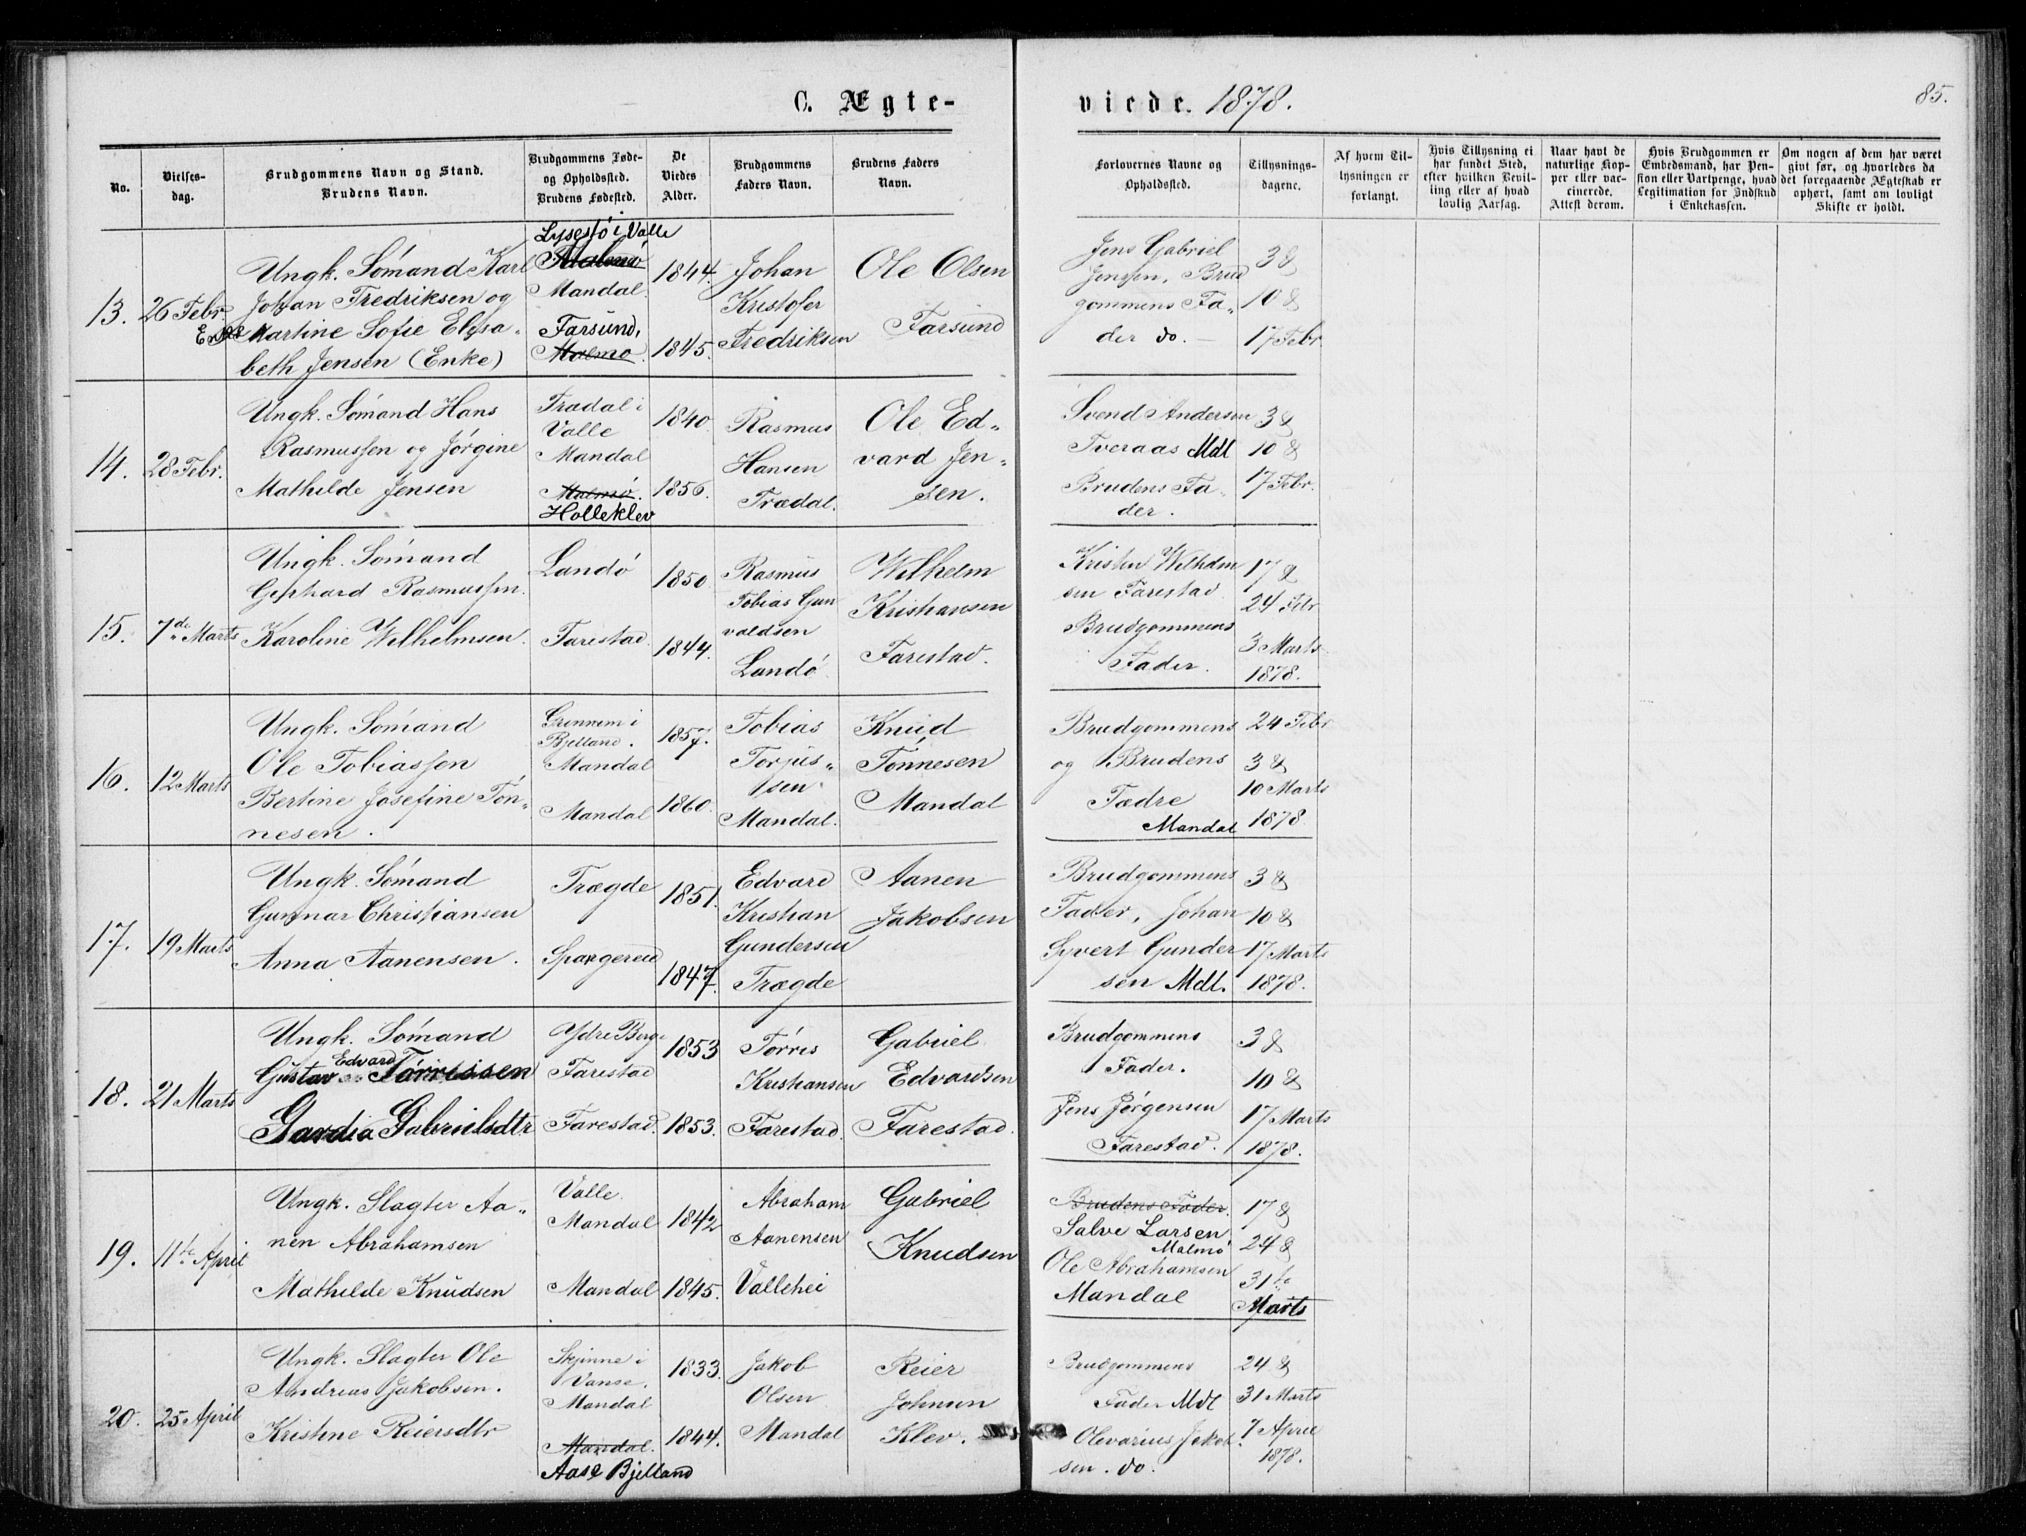 C. Ægte-
viede. 1878.
85.
No.
Vielses-
dag.
Brudgommens Navn og Stand.
Brudens Navn.
Brudgommens Føde-
og Opholdssted.
Brudens Fødested.
De
Viedes
Alder.
Brudgommens
Faders Navn.
Brudens Faders
Navn.
Forlovernes Navne og
Opholdssted.
Tillysnings-
dagene.
Af hvem Til-
lysningen er
forlangt.
Hvis Tillysning ei
har fundet Sted,
efter hvilken Bevil-
ling eller af hvad
lovlig Aarsag.
Naar havt de
naturlige Kop-
per eller vac-
cinerede.
Attest derom.
Hvis Brudgommen er
Embedsmand, har Pen-
sion eller Vartpenge, hvad
Legitimation for Indskud
i Enkekassen.
Om nogen af dem har været
givt før, og hvorledes da
det foregaaende Ægteskab er
ophørt, samt om lovligt
Skifte er holdt.
13.
26 Febr.
Ungk. Sómand Karl
Johan Fredriksen og
Enke Martine Sofie Elisa-
beth Jensen (Enke)
Lysestø i Valle
Malmø
Mandal.
Farsund,
Malmø.
1844.
1845.
Johan
Kristofer
Fredriksen
Ole Olsen
Farsund
Jens Gabriel
Jenssen, Brud
gommens Fa-
der do. —
3 &
10 &
17 Febr
14.
28 Febr.
Ungk. Sómand Hans
Rasmussen og Jórgine
Mathilde Jensen
Trædal i
Valle
Mandal
Malmø.
Holleklev
1840.
1856.
Rasmus
Hansen
Trædal.
Ole Ed-
vard Jen-
sen.
Svend Andersen
Tveraas Mdl
Brudens Fa-
der.
3 &
10 &
17 Febr.
15.
7de Marts
Ungk. Sómand
Gerhard Rasmussen.
Karoline Wilhelmsen.
Landó
Farestad.
1850.
1844.
Rasmus
Tobias Gun
valdsen
Landó.
Wilhelm
Kristiansen
Farestad.
Kristen Wilhelm
sen Farestad
Brudgommens
Fader.
17 &
24 Febr
3 Marts
1878.
16.
12 Marts
Ungk. Sómand
Ole Tobiassen
Bertine Josefine Tón-
nesen.
Grunnem i
Bjelland.
Mandal
Mandal
1857.
1860.
Tobias
Torjus-
sen
Mandal.
Knud
Tónnesen
Mandal
Brudgommens
og Brudens
Fædre
Mandal
24 Febr
3 &
10 Marts
1878.
17.
19 Marts
Ungk. Sómand
Gunnar Christiansen
Anna Aanensen.
Trægde
Spangereid
1851.
1847.
Edvard
Kristian
Gundersen
Trægde
Aanen
Jakobsen
Brudgommens
Fader, Johan
Syvert Gunder
sen Mdl.
3 &
10 &
17 Marts
1878.
18.
21 Marts
Ungk. Sómand
Gustav Edvard Tórressen
Gardia Gabrielsdtr
Ydre Berge
Farestad
Farestad.
1853
1853.
Tórres
Kristiansen
Farestad.
Gabriel
Edvardsen
Farestad.
Brudgommens
Fader.
Jens Jórgensen
Farestad.
3 &
10 &
17 Marts
1878.
19.
11te April
Ungk. Slagter Aa-
nen Abrahamsen
Mathilde Knudsen
Valle.
Mandal
Mandal
1842
1845.
Abraham
Aanensen
Vallehei
Gabriel
Knudsen
Brudens Fader.
Salve Larsen
Malmø
Ole Abrahamsen
Mandal
17 &
24 &
31te
Marts
20.
25 April
Ungk. Slagter Ole
Andreas Jakobsen.
Kristine Reiersdtr
Skjinne i
Vanse.
Mandal
Mandal.
Aase Bjelland
1833.
1844.
Jakob
Olsen
Mandal
Reier
Johnsen
Klev.
Brudgommens
Fader Mdl
Olevarius Jakob-
sen. do.
24 &
31 Marts
7 April
1878.